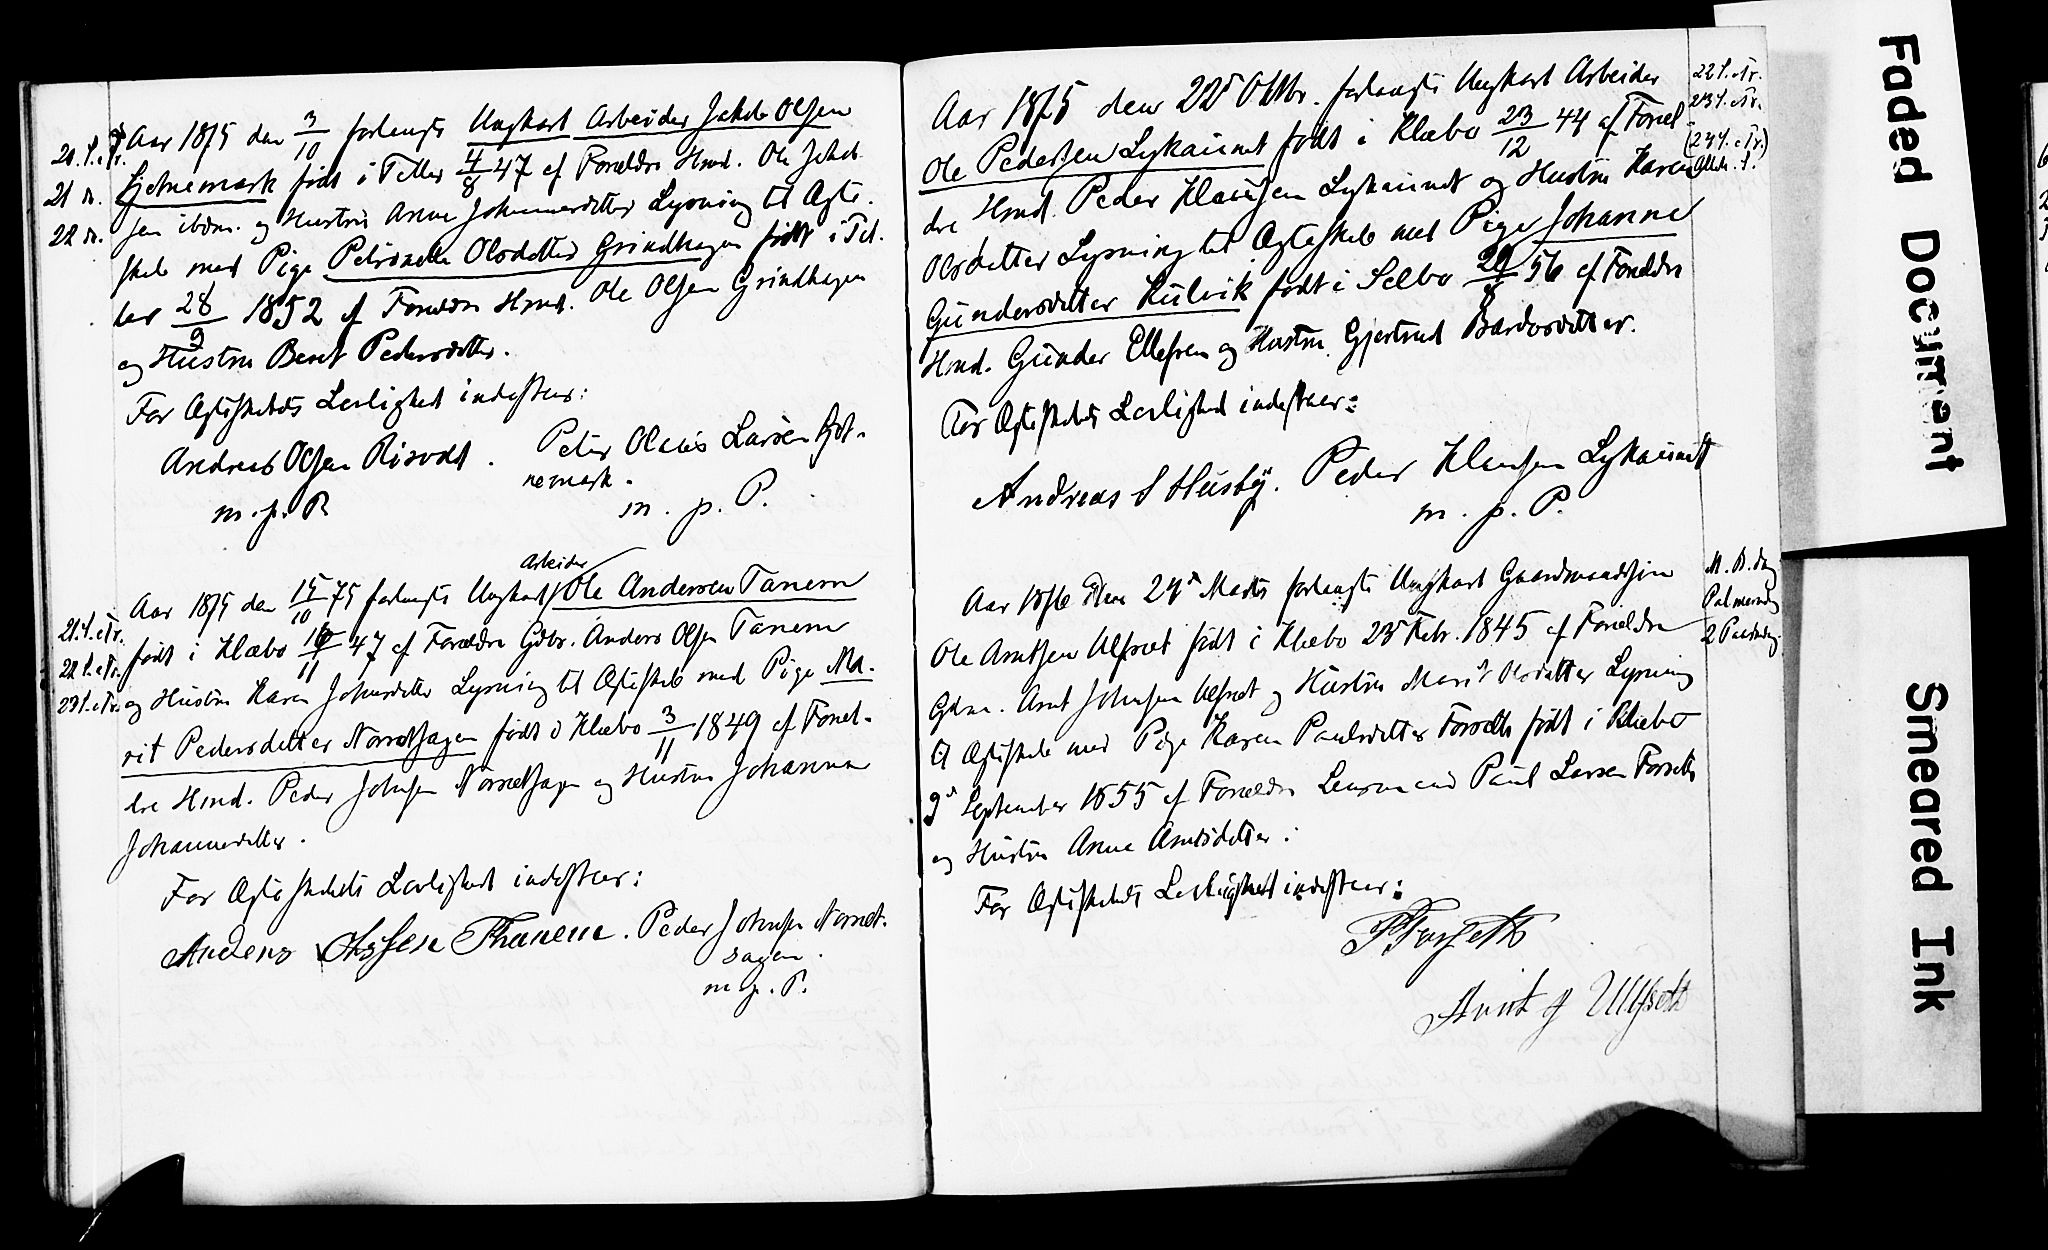 20. S. e. Tr.
21 "
22 "
Aar 1875 den 3/10 forlangte Ungkarl Arbeider Jakob Olsen
Tjetnemark født i Tiller 4/8 47 af Forældre Hmd. Ole Jakob-
sen ibdm. og Hustru Anne Johannesdatter Lysning til Ægte-
skab med Pige Petronelle Olsdatter Grindhagen født i Til-
ler 28/9 1852 af Forældre Hmd. Ole Olsen Grindhagen
og Hustru Beret Pedersdatter.
For Ægteskabets Lovlighed indestaar:
Andreas Olsen Risvodt. Peter Olaus Larsen Tjet-
nemark.
m. p. P. m. p. P.
21. S. e. Tr.
22. S. e. Tr.
23 S. e. Tr.
Arbeider
Aar 1875 den 15/10 75 forlangte Ungkarl Ole Andersen Tanem
født i Klæbo 16/11 47 af Forældre Gdbr. Anders Olsen Tanem
og Hustru Karen Johnsdatter Lysning til Ægteskab med Pige Ma-
rit Pedersdatter Norsetsagen født i Klæbo 3/11 1849 af Foræl-
dre Hmd. Peder Johnsen Norsetsagen og Hustru Johanna
Johannesdatter.
For Ægteskabets Lovlighed indestaar:
Anders Olsen Thanem. Peder Johnsen Norset-
sagen.
m. p. P.
22 S. e. Tr.
23 S. e. Tr.
(24 S. e. Tr.)
Alleh. S.
Aar 1875 den 22de Oktbr. forlangte Ungkarl Arbeider
Ole Pedersen Lykaunet født i Klæbo 23/12 44 af Foræl-
dre Hmd. Peder Klausen Lykaunet og Hustru Karen
Olsdatter Lysning til Ægteskab med Pige Johanne
Gundersdatter Kulvik født i Selbo 20/8 56 af Forældre
Hmd. Gunder Ellefsen og Hustru Gjertrud Baardsdatter.
For Ægteskabets Lovlighed indestaar:
Andreas S Husby. Peder Klausen Lykaunet
m. p. P.
M. B. dag
Palmesøndag
2 Paaskedag
Aar 1876 den 24de Marts forlangte Ungkarl Gaardmandssøn
Ole Arntsen Ulfset født i Klæbo 23de Febr. 1845 af Forældre
Gdm. Arnt Johnsen Ulfset og Hustru Marit Olsdatter Lysning
til Ægteskab med Pige Karen Paulsdatter Forseth født i Klæbo
9de September 1855 af Forældre Lensmand Paul Larsen Forseth
og Hustru Anne Arntsdatter.
For Ægteskabets Lovlighed indestaar:
P Forseth
Arnt J Ulfseth
Faded Document
Smeared Ink